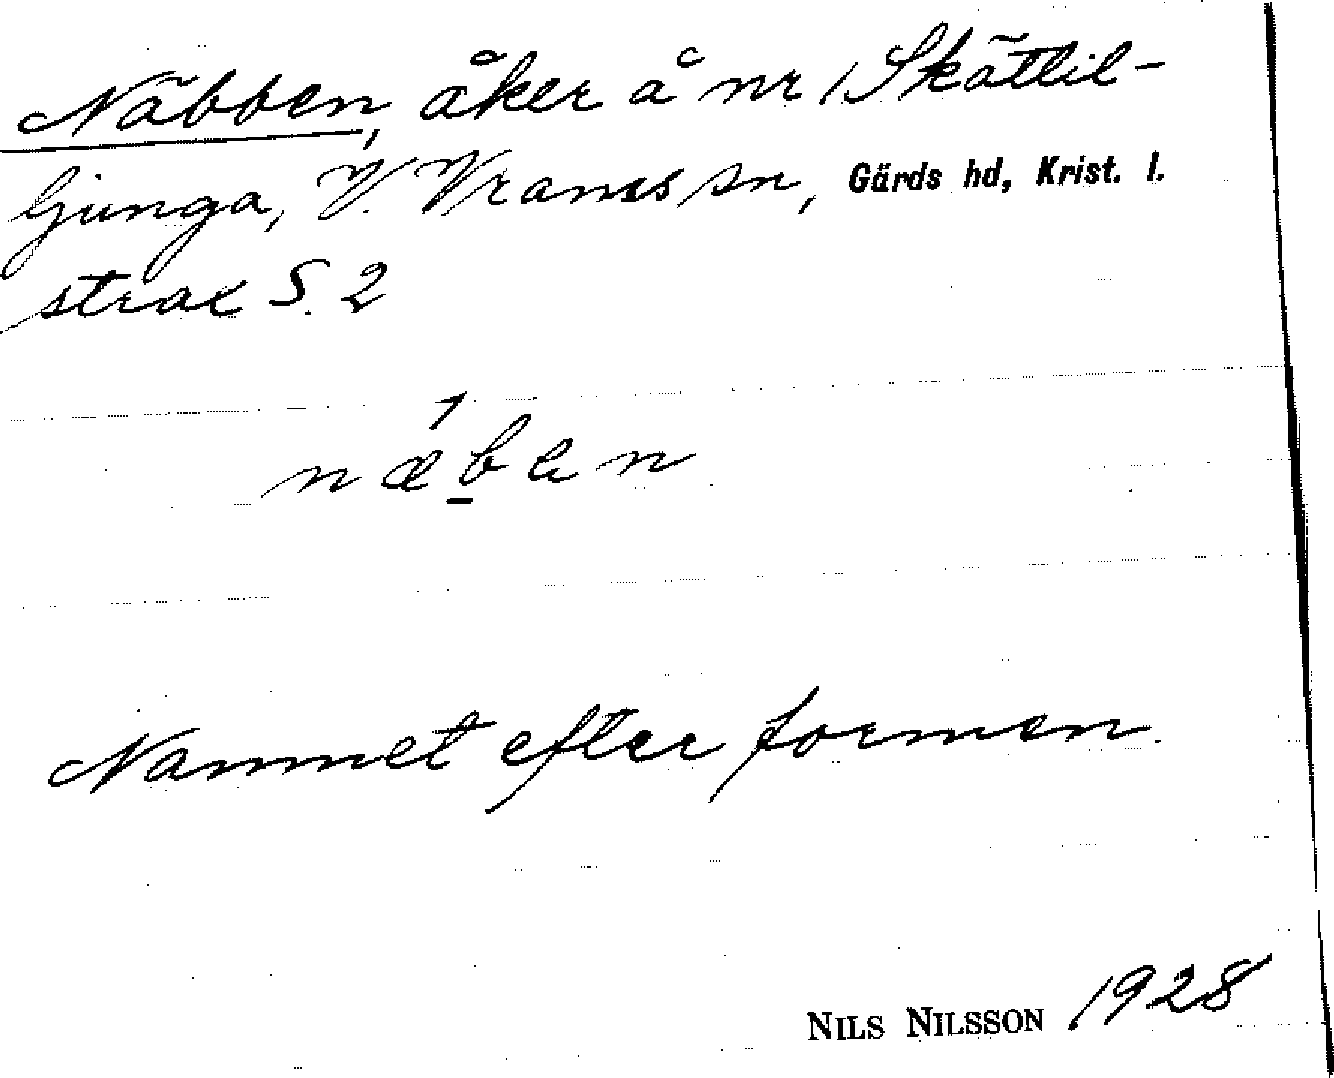 Näbben, åker å nr 1 Skättil-
ljunga, V. Vrams sn, Gärds hd, Krist. l.
strax S. 2
næben
Namnet efter formen.
NILS NILSSON 1928